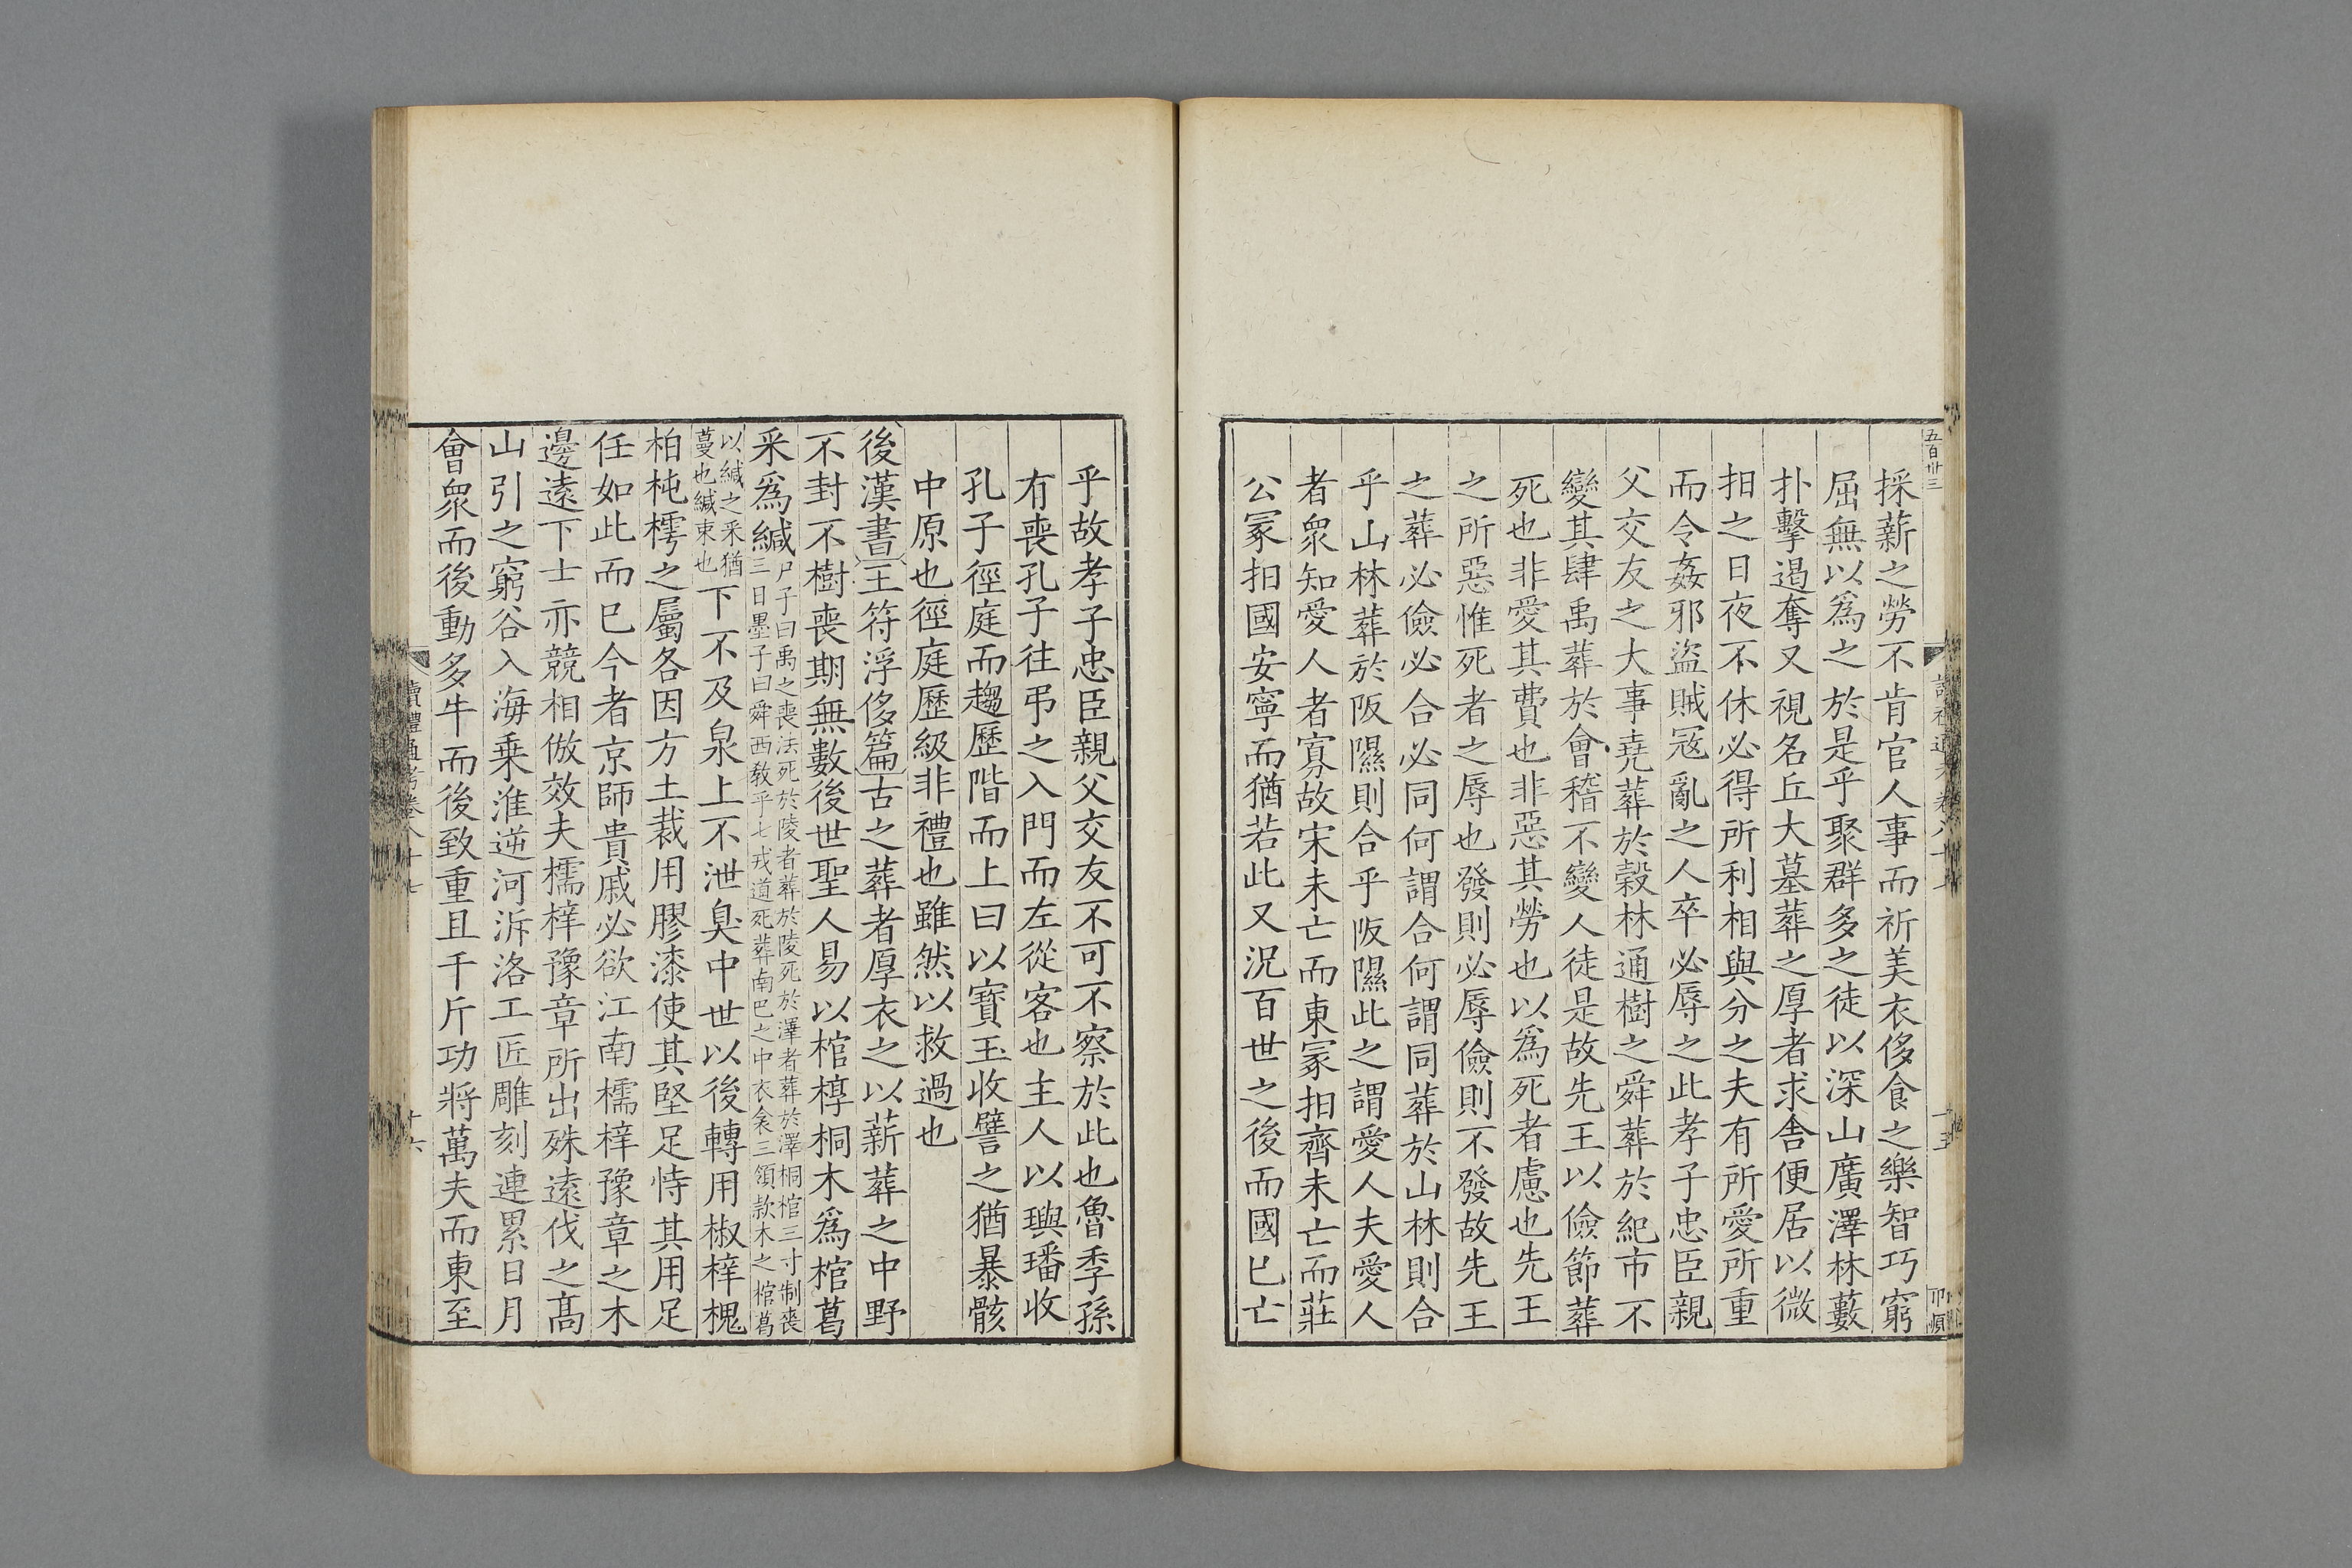 五百卅三
採薪之勞不肯官人事而祈美衣侈食之樂智巧窮
屈無以爲之於是乎聚群多之徒以深山廣澤林藪
扑擊遏奪又視名丘大墓葬之厚者求舎便居以微
抇之日夜不休必得所利相與分之夫有所愛所重
而令姦邪盜賊冦亂之人卒必辱之此孝子忠臣親
父交友之大事堯葬於穀林通樹之舜葬於紀市不
變其肆禹葬於會稽不變人徒是故先王以儉節葬
死也非愛其費也非惡其勞也以爲死者慮也先王
之所惡惟死者之辱也發則必辱儉則不發故先王
之葬必儉必合必同何謂合何謂同葬於山林則合
乎山林葬於阪隰則合乎阪隰此之謂愛人夫愛人
者衆知愛人者寡故宋未亡而東冡抇齊未亡而莊
公冡抇國安寧而猶若此又況百世之後而國已亡
乎故孝子忠臣親父交友不可不察於此也魯季孫
有喪孔子往弔之入門而左從客也主人以璵璠收
孔子徑庭而趨歷階而上曰以寶玉收譬之猶暴骸
中原也徑庭歷級非禮也雖然以救過也
後漢書王符浮侈篇古之葬者厚衣之以薪葬之中野
不封不樹喪期無數後世聖人易以棺椁桐木爲棺葛
采爲緘尸子曰禹之喪法死於陵者葬於陵死於澤者葬於澤桐棺三寸制喪
三日墨子曰舜西教乎七戎道死葬南巴之中衣衾三領款木之棺葛
以緘之采猶
蔓也緘束也下不及泉上不泄臭中世以後轉用椒梓槐
柏杶樗之屬各因方土裁用膠漆使其堅足恃其用足
任如此而已今者京師貴戚必欲江南檽梓豫章之木
邊遠下士亦競相倣效夫檽梓豫章所出殊遠伐之高
山引之窮谷入海乗淮逆河泝洛工匠雕刻連累日月
會衆而後動多牛而後致重且千斤功將萬夫而東至
讀禮通考卷八十七
十六